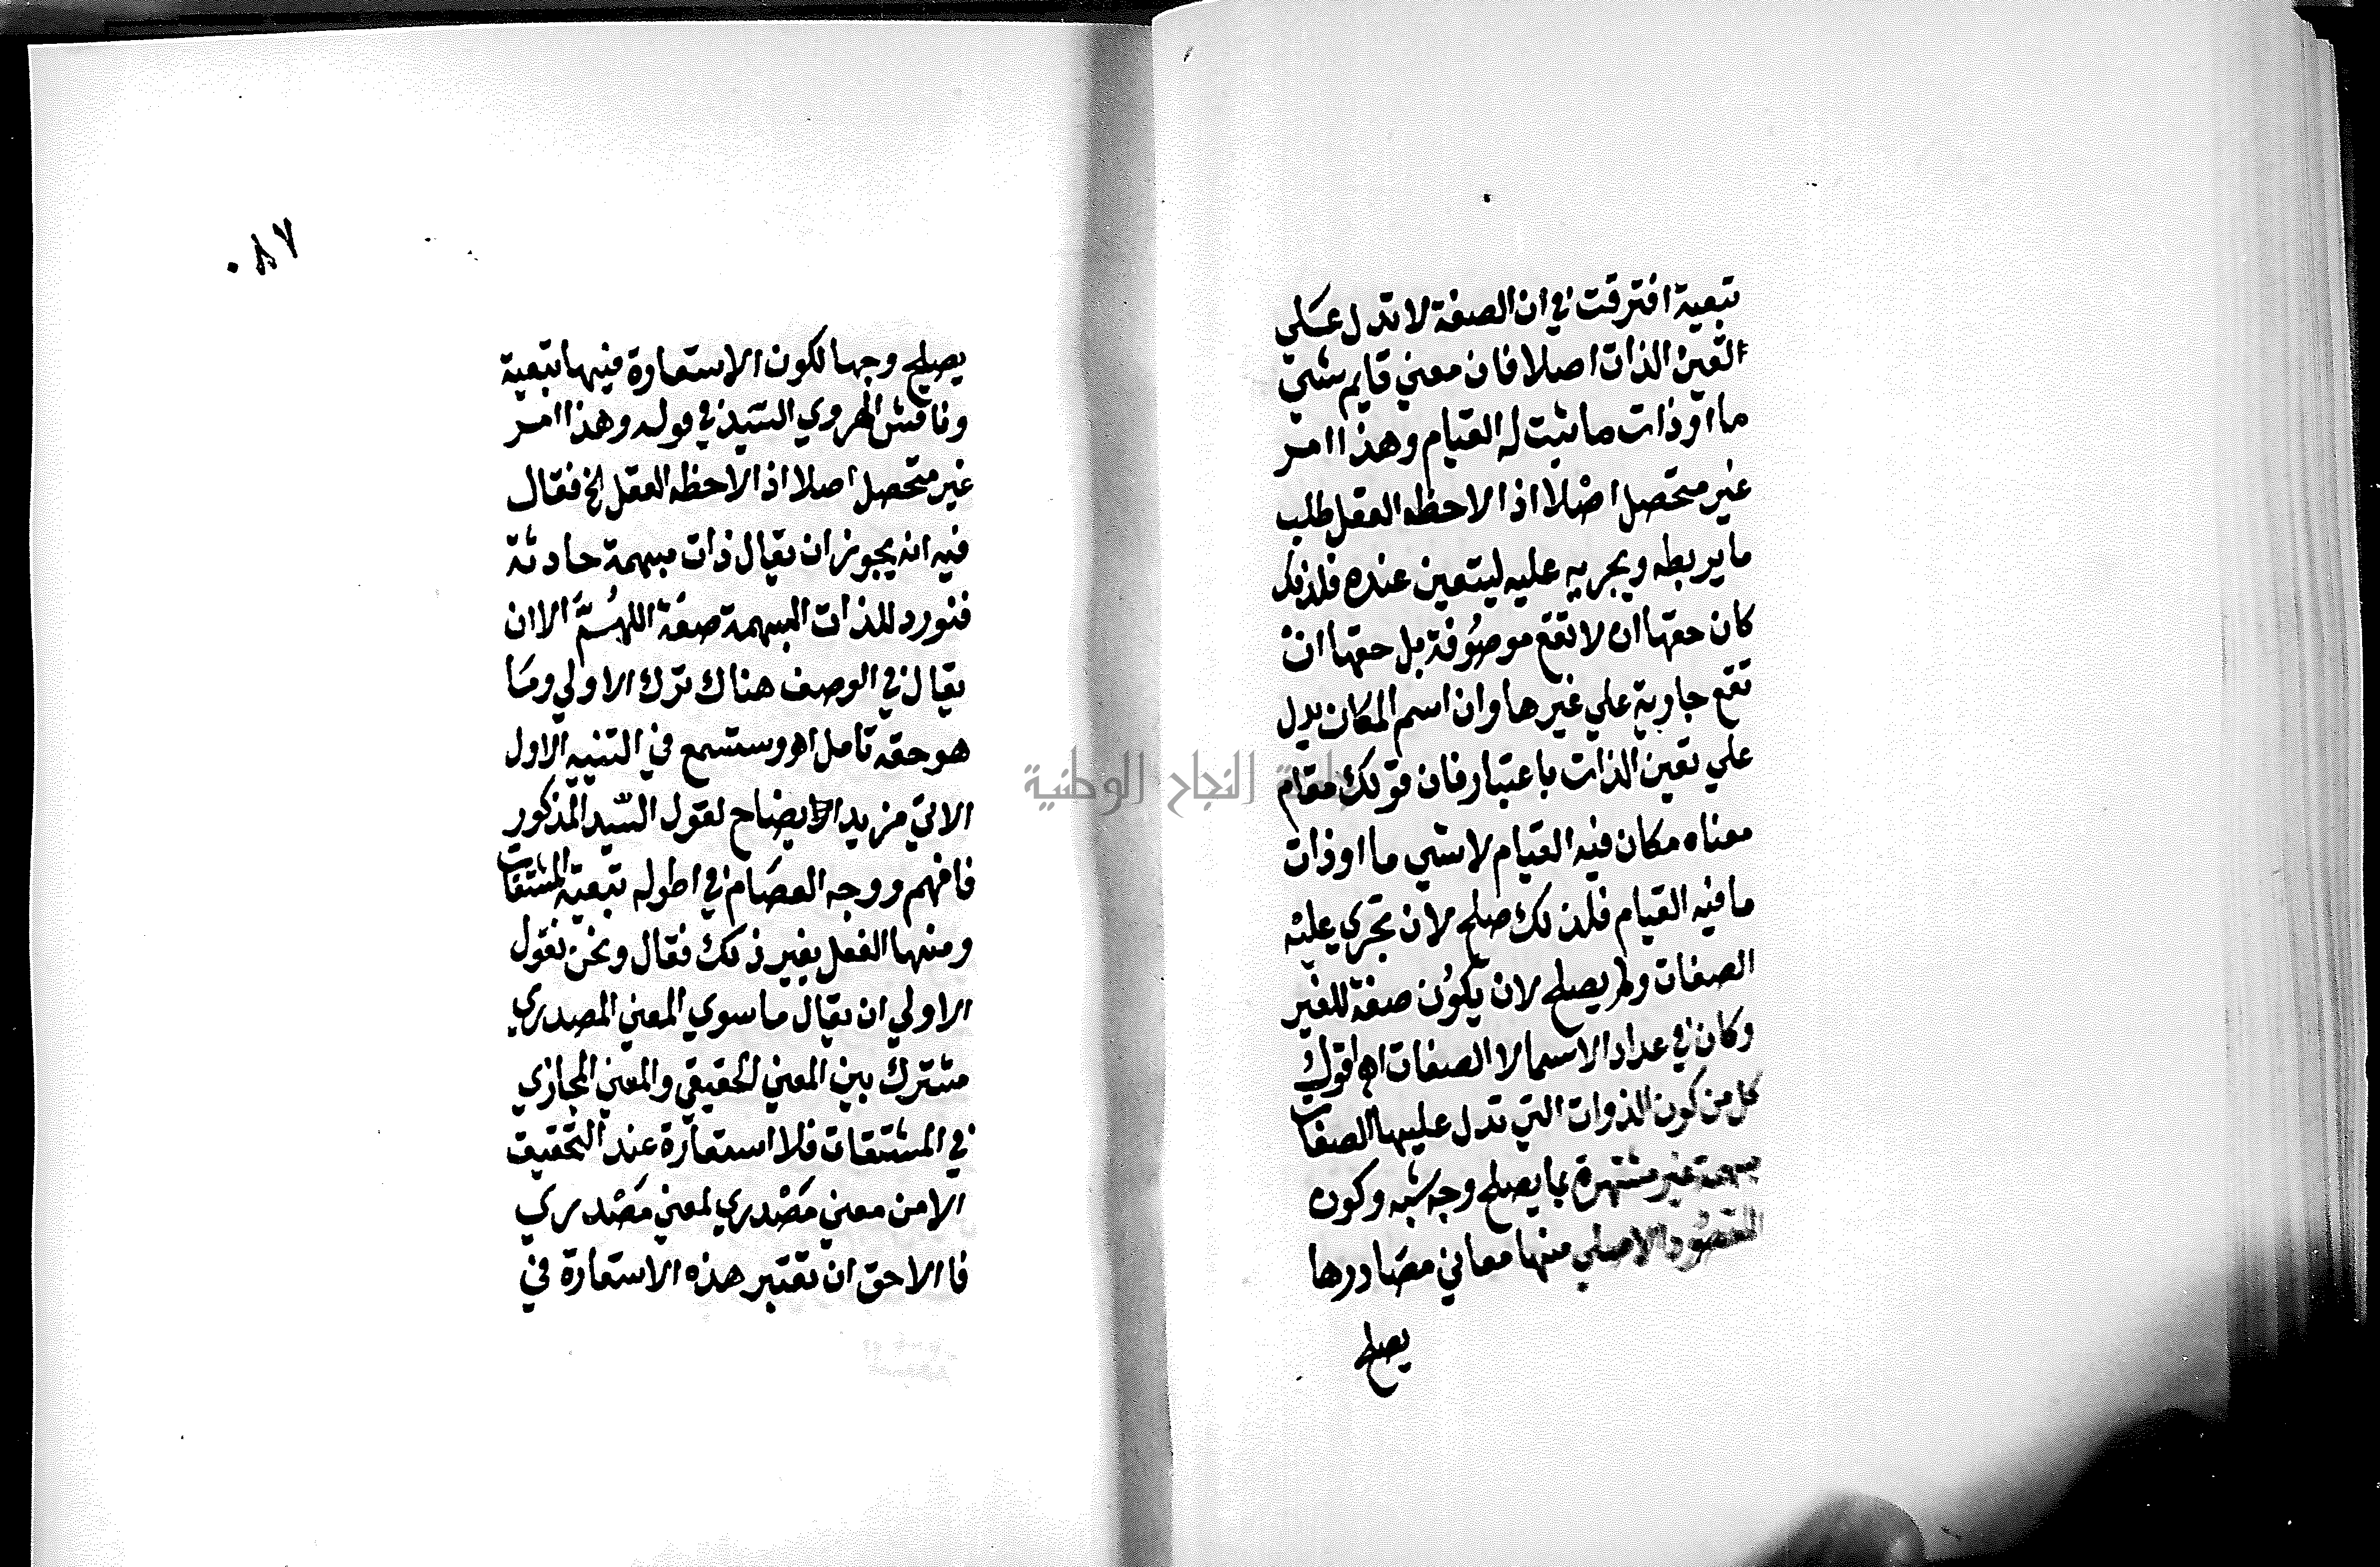 تبعية افترقت في ان الصفة لا تدل على
تعين الذات اصلا فان معني قايم شي
ما او ذات ما ثبت له القيام وهذا امر
غير متحصل اصلا اذ الاحظه العقل طلب
ما يربطه ويجريه عليه ليتعين عنده فلذلك
كان حقها ان لا تقع موصوفة بل حقها ان
تقع جارية علي غيرها وان اسم المكان يدل
علي تعين الذات باعتبار فان قولك مقام
معناه مكان فيه القيام لا شي ما او ذات
ما فيه القيام فلذلك صلح لان تجري عليه
الصفات ولم يصلح لان يكون صفة للغير
وكان في عداد الاسما لا الصفات اهـ اقول
كل من كون الذوات التي تدل عليها الصفات
مبهمة غير مشتهرة بما يصلح وجه شبه وكون
المقصود الاصلي منها معاني مصادرها
يصلح
٠٨٧
يصلح وجها لكون الاستعارة فيها تبعية
وناقش الهروي السيد في قوله وهذا امر
غير متحصل اصلا اذ الاحظه العقل الخ فقال
فيه انه يجوز ان يقال ذات مبهمة حادثة
فنورد للذات المبهمة صفة اللهم الا ان
يقال في الوصف هناك ترك الاولي وما
هو حقه تامل اهـ وستسمع في التنبيه الاول
الاتي مزيد ايضاح لقول السيد المذكور
فافهم ووجه العصام في اطوله تبعية المشتقات
ومنها الفعل بغير ذلك فقال ونحن نقول
الاولي ان يقال ما سوي المعني المصدري
مشترك بين المعني الحقيقي والمعني المجازي
في المشتقات فلا استعارة عند التحقيق
الا من معني مصدري لمعني مصدري
فالاحق ان تعتبر هذه الاستعارة في
جامعة النجاح الوطنية